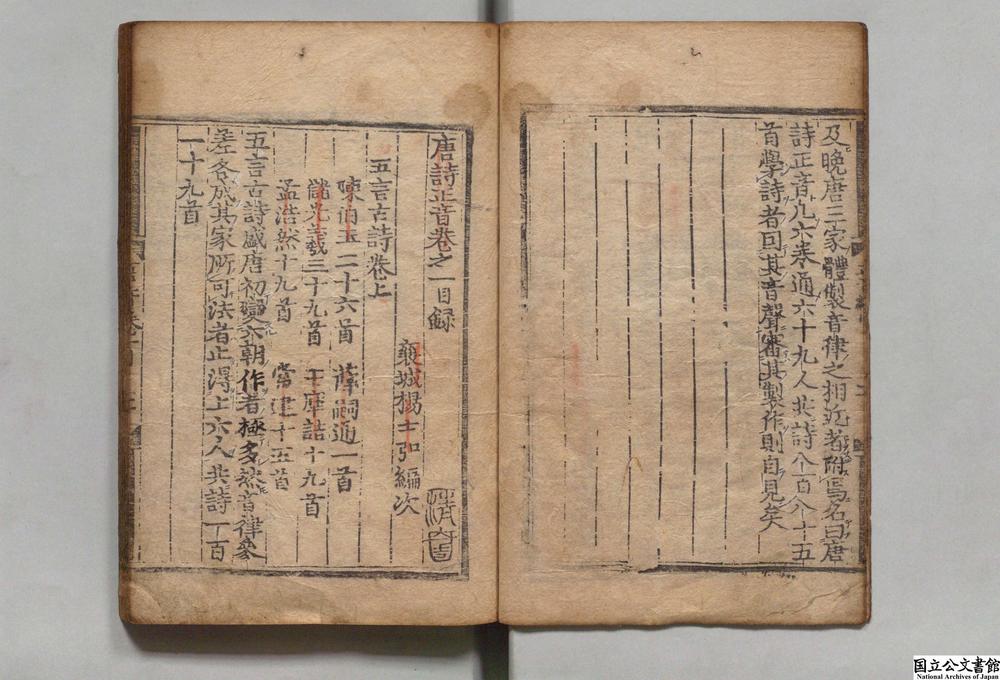 及晚唐三家體製音律之相近者附焉名曰唐
詩正音凡六卷通六十九人共詩八百八十五
首學詩者因其音聲審其製作則自見矣
唐詩正音卷之一目録
襄城楊士弘編次
五言古詩卷上
陳伯玉二十六首 薛嗣通一首
儲光羲三十九首 王摩詰十九首
孟浩然十九首 常建十五首
五言古詩盛唐初變六朝作者極多然音律參
差各成其家所可法者止得上六人共詩一百
一十九首
国立公文書館
National Archives of Japan